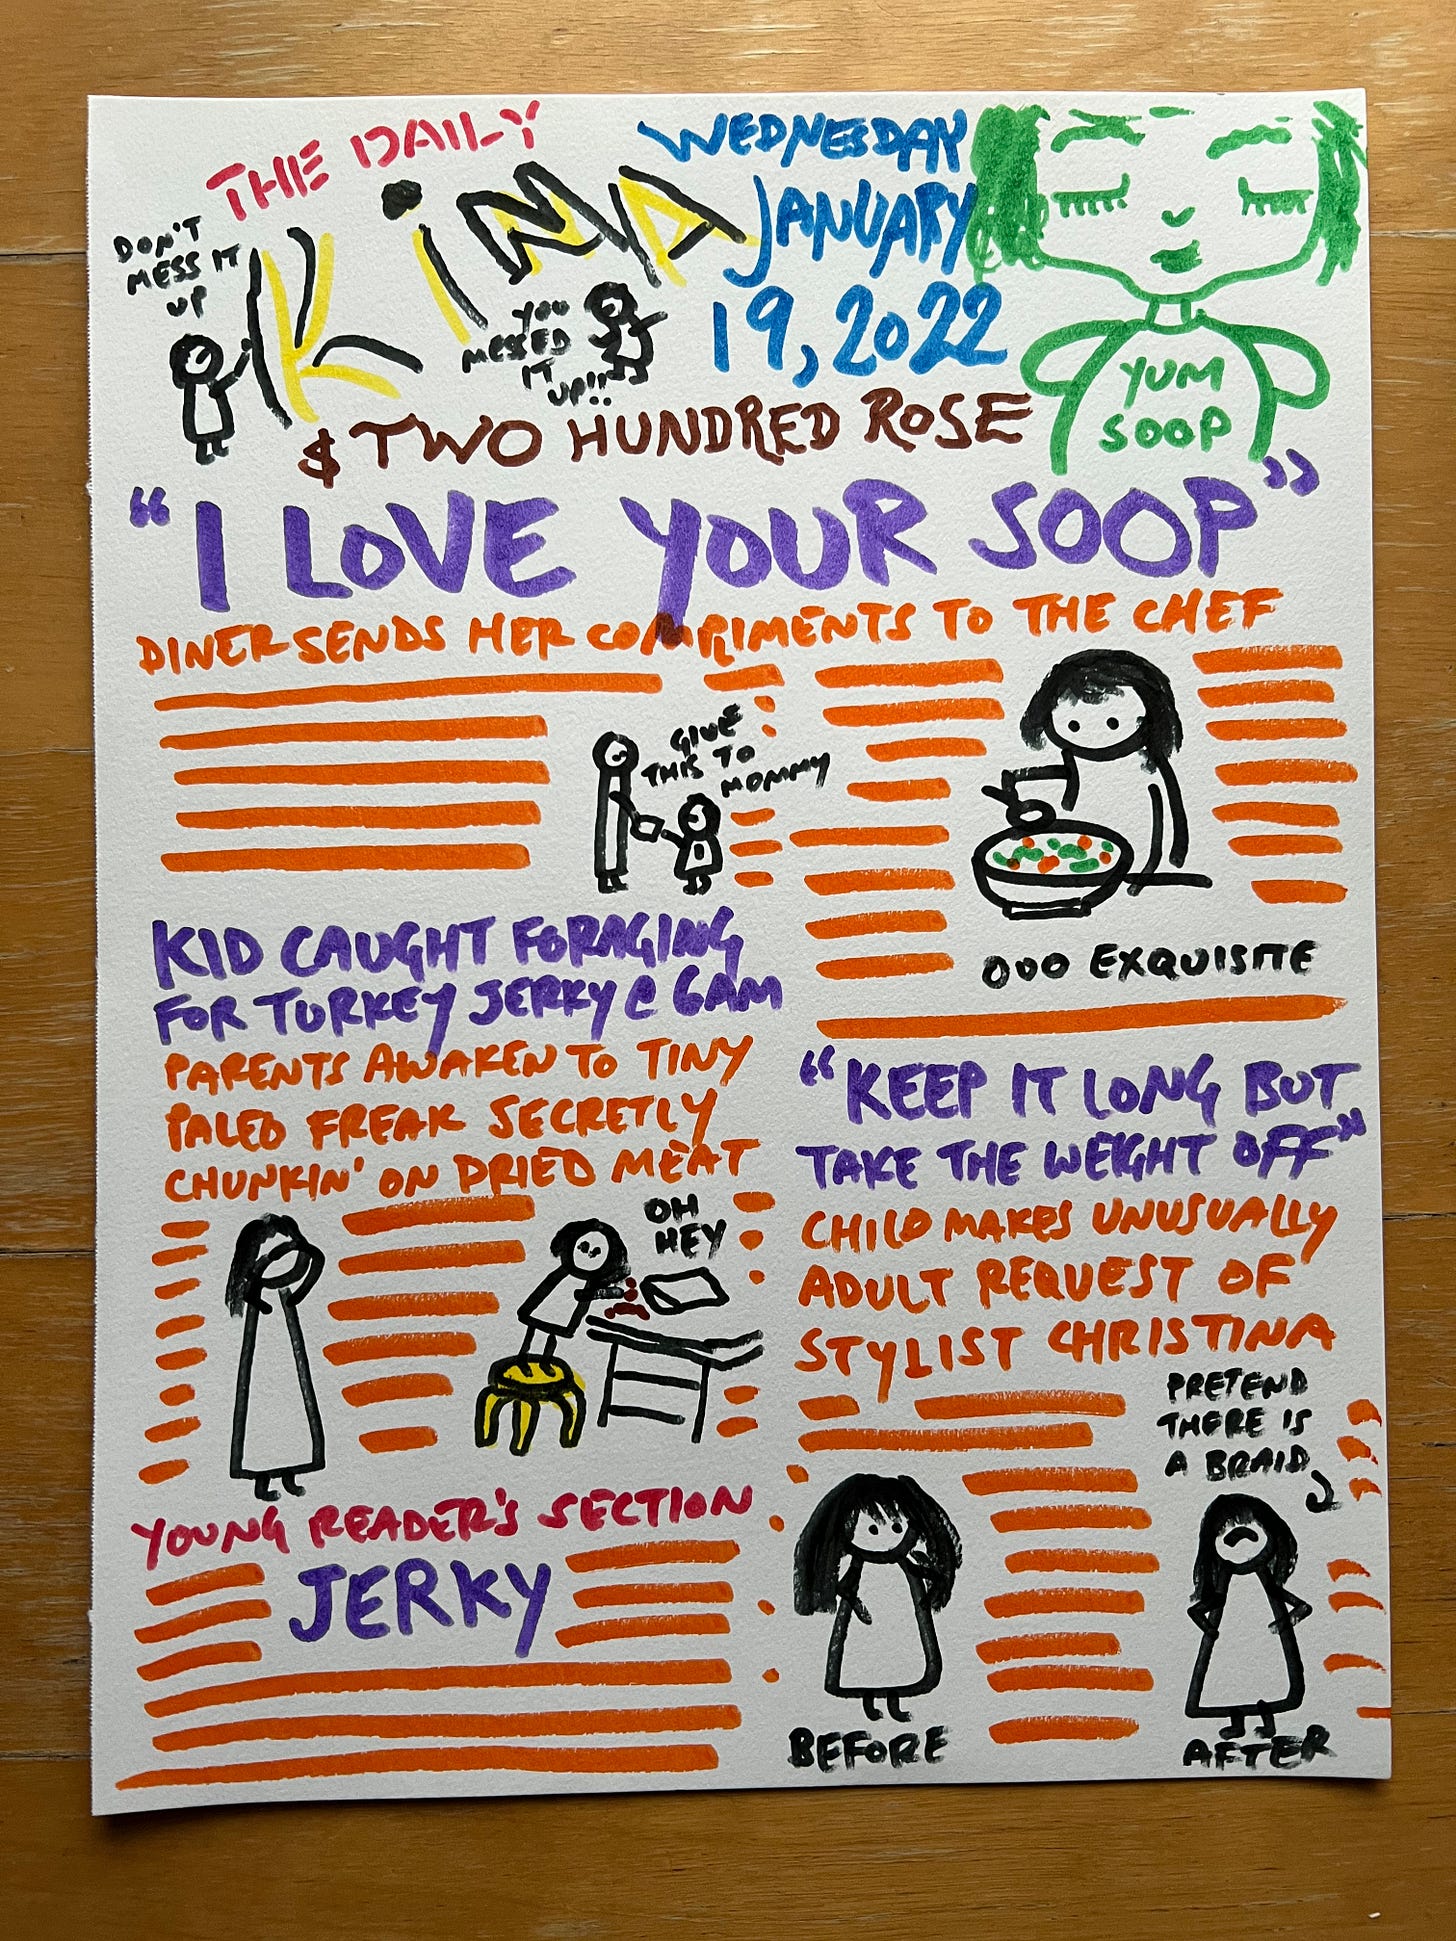 THE DAILY
KiMA
DON'T
MESS IT
UP
YOU
MESSED
IT
UP!!
WEDNESDAY
JANUARY
19, 2022
YUM
SOOP
$ TWO HUNDRED ROSE
"I LOVE YOUR SOOP"
DINER SENDS HER COMPLIMENTS TO THE CHEF
GIVE
THIS TO
MOMMY
OOO EXQUISITE
KID CAUGHT FORAGING
FOR TURKEY JERKY @ 6AM
PARENTS AWAKEN TO TINY
PALEO FREAK SECRETLY
CHUNKIN' ON DRIED MEAT
OH
HEY
"KEEP IT LONG BUT
TAKE THE WEIGHT OFF"
CHILD MAKES UNUSUALLY
ADULT REQUEST OF
STYLIST CHRISTINA
PRETEND
THERE IS
A BRAID
BEFORE
AFTER
YOUNG READER'S SECTION
JERKY